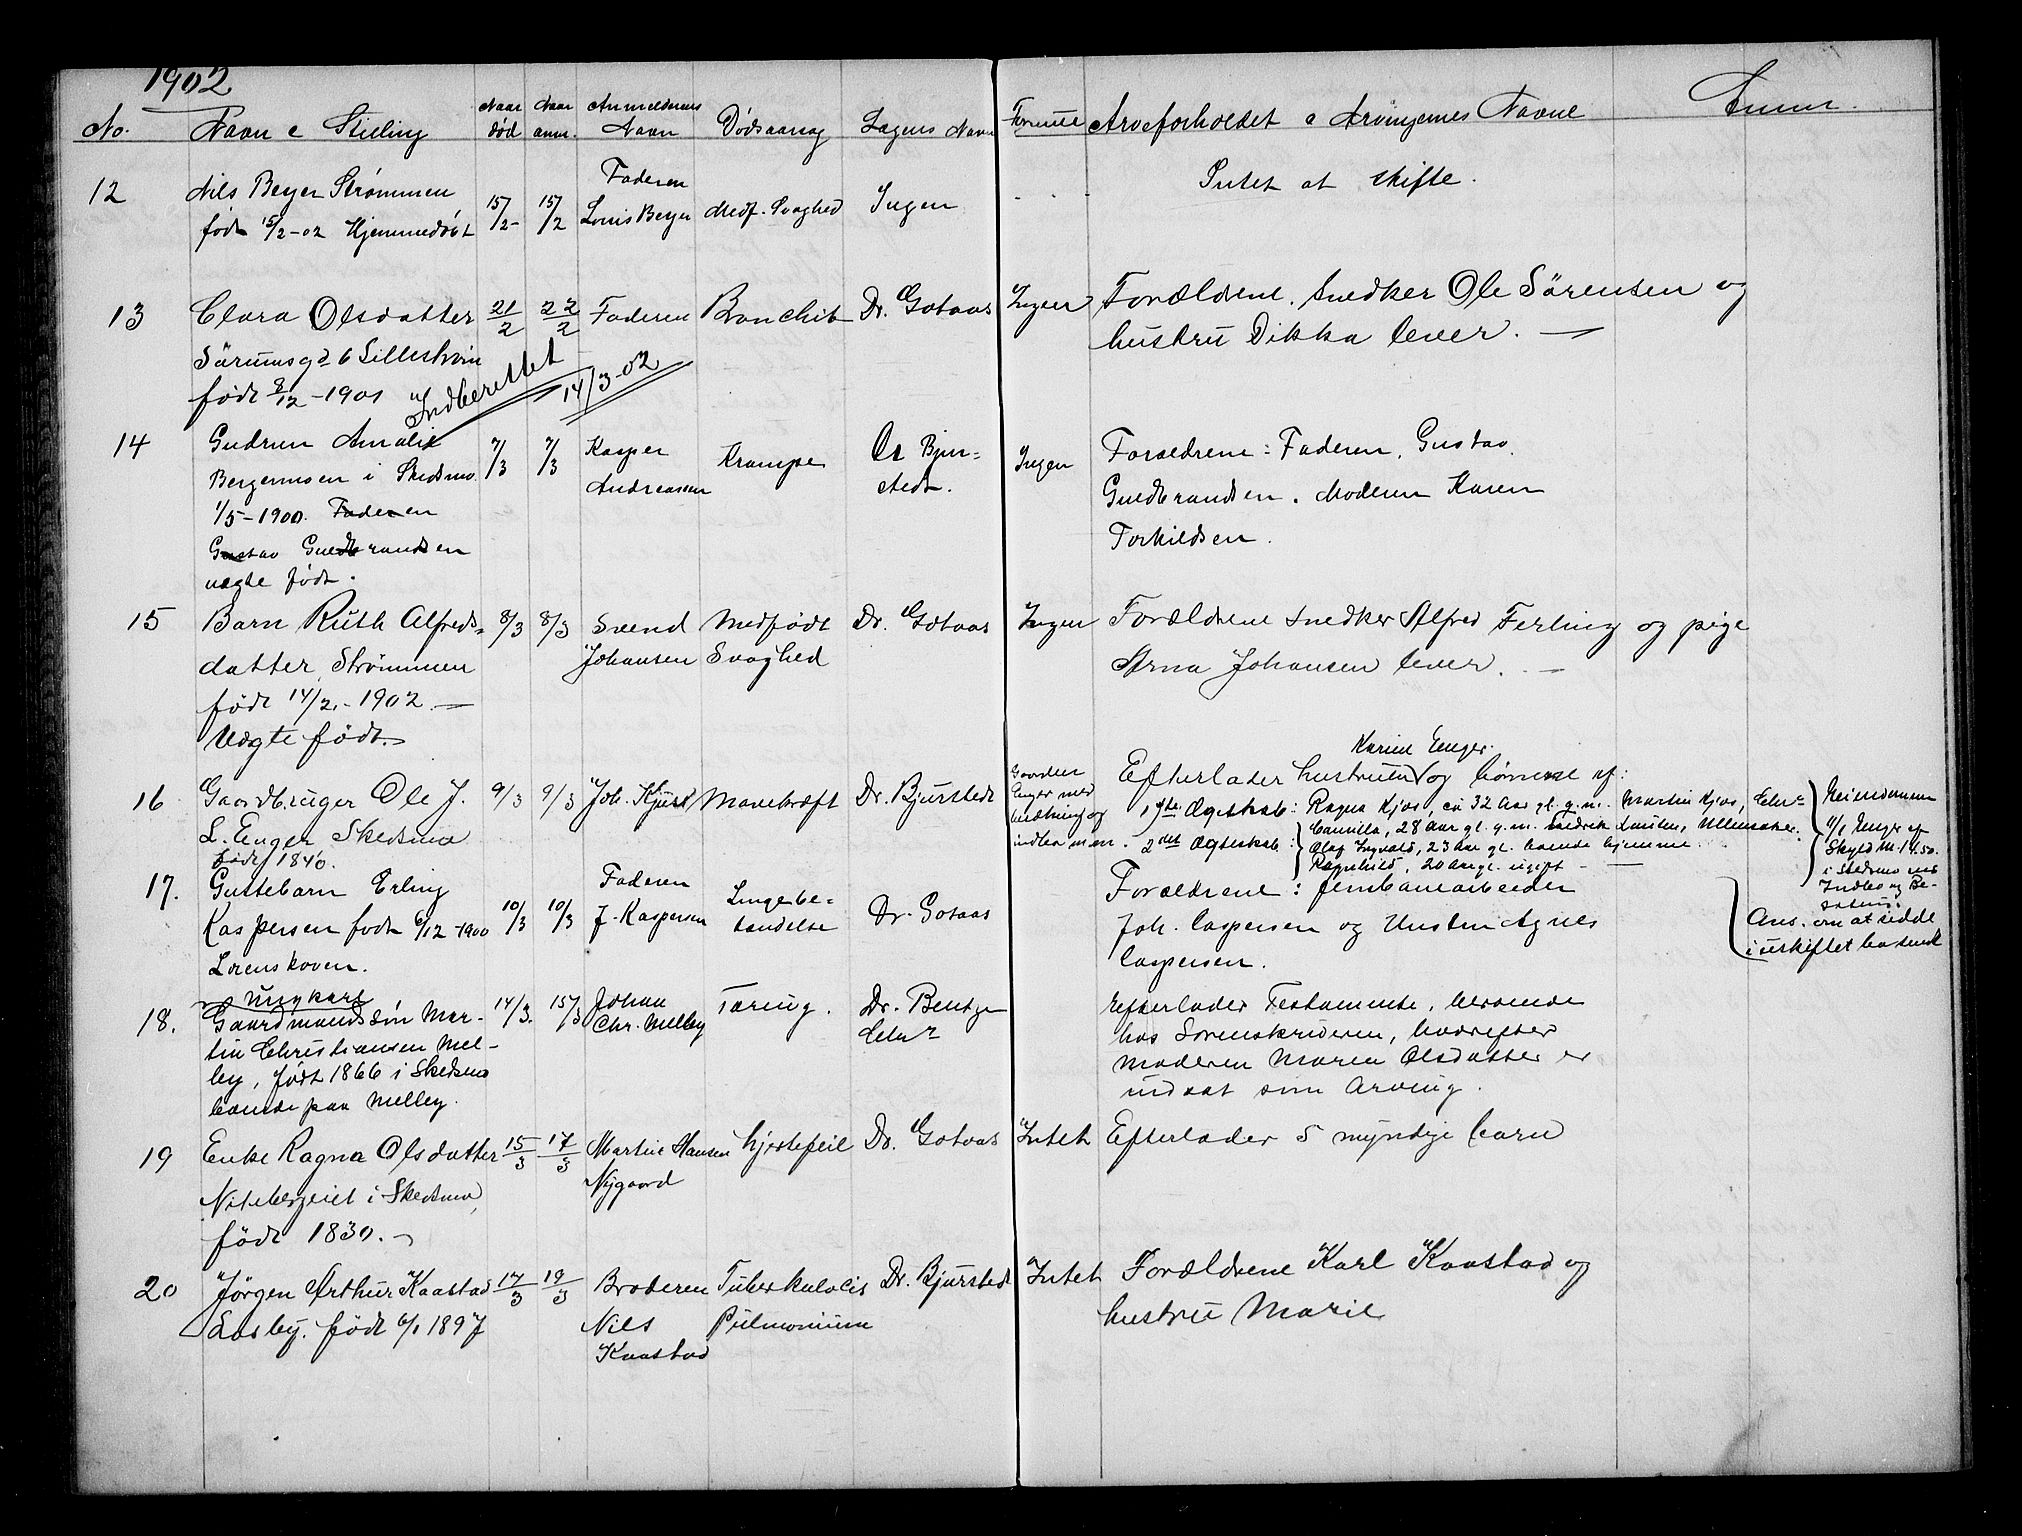 1902
No. Navn & Stilling Naar død Naar anm. Anmelderens Navn Dødsaarsag Lægens Navn Formue Arveforholdet & Arvingernes Navne Anm.
12 Nils Beyer Strømmen 15/2- 15/2 Faderen Louis Beyer Medf. Svaghed Ingen Intet at skifte.
født 15/2-02 Hjemmedøbt
13 Clara Olsdatter 21/2 22/2 Faderen Bronchit Dr. Gotaas Ingen Forældrene. Snedker Ole Sörensen og
Sörumsgd 6 Lillestrøm hustru Dikka lever. —
født 8/12-1901 Indberettet 14/3-02
14 Gudrun Amalie 7/3 7/3 Kasper Krampe Dr Bjur= Ingen Forældrene: Faderen, Gustav
Bergermoen i Skedsmo Andreassen stedt. Guldbrandsen. Moderen Karen
1/5-1900. Faderen Torkildsen.
Gustav Guldbrandsen
uægte født.
15 Barn Ruth Alfreds= 8/3 8/3 Svend Medfødt Dr. Gotaas Ingen Forældrene Snedker Alfred Ferling og pige
datter, Strømmen Johansen Svaghed Arna Johansen lever. —
født 14/2.-1902.—
Uægte født.
Karine Enger.
16 Gaardbruger Ole J. 9/3 9/3 Joh. Kjus Mavekræft Dr. Bjurstedt Gaarden Enger med indbo m.m. Efterlader hustruen og børnene af:
L. Enger Skedsmo 1ste Ægteskab: Ragna Kjos, ca 32 Aar gl. g.m. Martin Kjos,
født 1840. 2det Ægteskab: Camilla, 28 Aar gl. g.m. Fredrik Knutsen, Ullensaker.
Olaf Ingvald, 23 Aar gl. boende hjemme.
Ragnhild, 20 Aar gl. ugift —
Eiendommen
1/1 Enger af
Skyld M. 14.50.
i Skedsmo med
Indbo og Be-
sætning.
Ans. om at sidde
i uskiftet bo sendt
17. Guttebarn Erling 10/3 10/3 Faderen Lungebe= Dr. Gotaas Forældrene: Jernbanearbeider
Kaspersen født 6/12-1900 J. Kaspersen tændelse Joh. Caspersen og Hustru Agnes
Lørenskoven. Caspersen.
18. Ungkarl 14/3. 15/3 Johan Tæring. Dr. Bentzen Efterlader Testamente, beroende
Gaardmandssøn Mar- Chr. Melleby hos Sorenskriveren, hvorefter
tin Christiansen Mel- moderen Maren Olsdatter er
leby, født 1866 i Skedsmo indsat som Arving.
boende paa Melleby.
19 Enke Ragna Olsdatter 15/3 17/3 Martin Hansen hjertefeil Dr. Gotaas Intet Efterlader 5 myndige barn
Nitebergeiet i Skedsmo, Nygaard
født 1830.—
20 Jørgen Arthur Kaastad 17/3 19/3 Broderen Tuberkulosis Dr. Bjurstedt Intet Forældrene Karl Kaastad og
Losby. født 6/1 1897 Nils Pulmonium hustru Marie
Kaastad